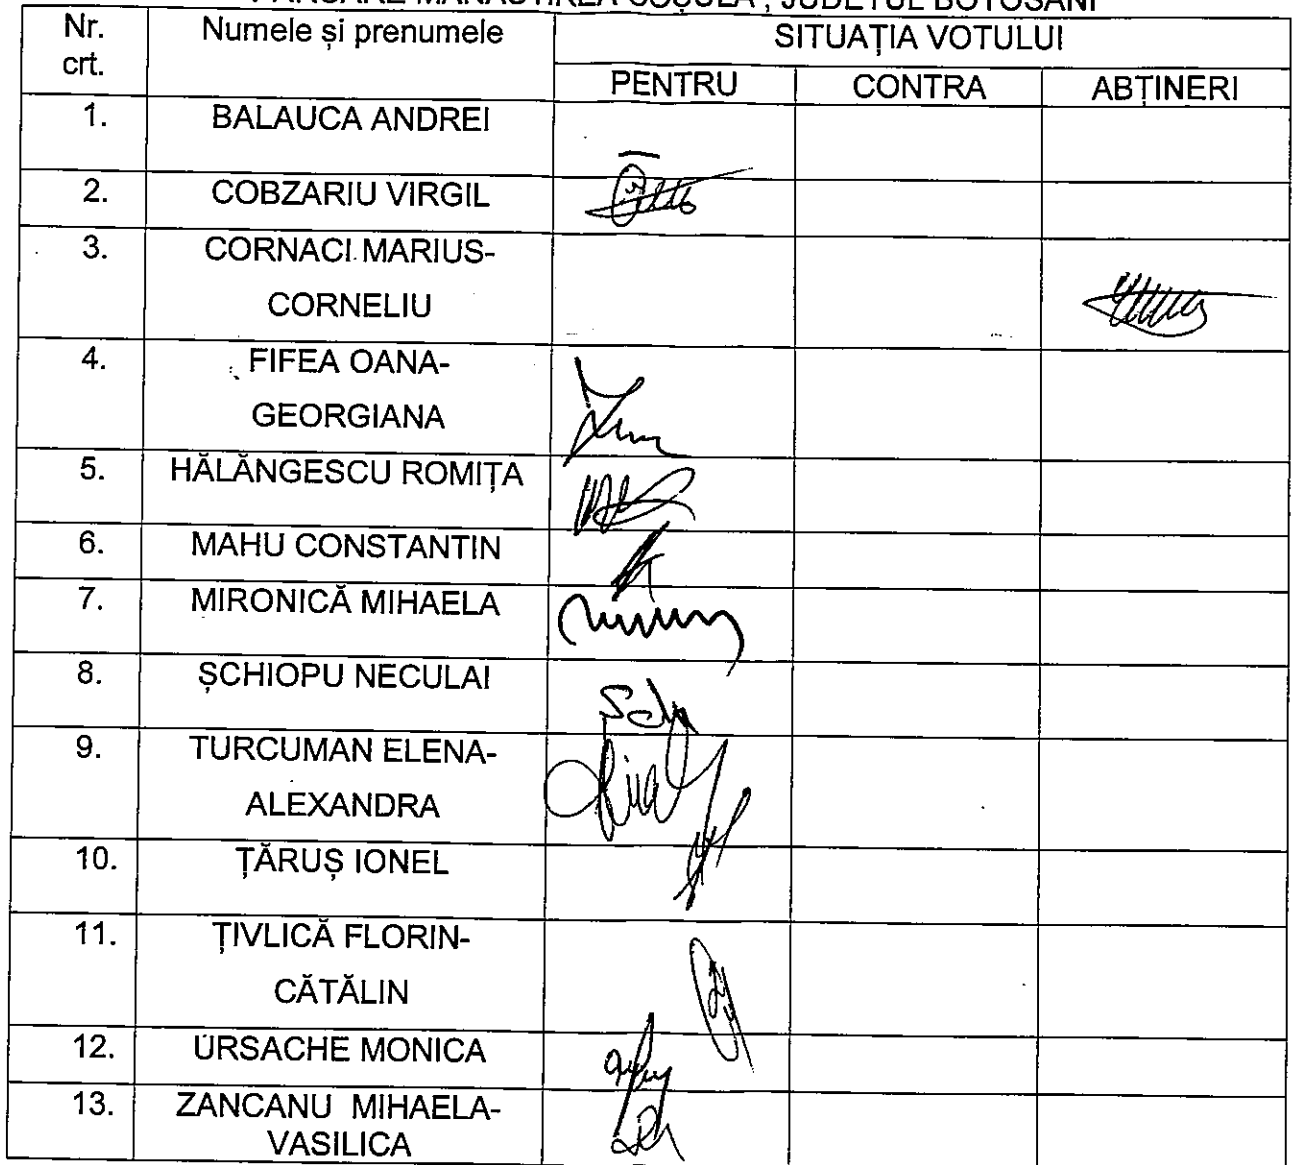 PARCARE MĂNĂSTIREA COȘULA , JUDEȚUL BOTOȘANI
Nr. crt. Numele și prenumele SITUAȚIA VOTULUI
PENTRU CONTRA ABȚINERI
1. BALAUCA ANDREI
2. COBZARIU VIRGIL
3. CORNACI MARIUS-
CORNELIU
4. FIFEA OANA-
GEORGIANA
5. HĂLĂNGESCU ROMIȚA
6. MAHU CONSTANTIN
7. MIRONICĂ MIHAELA
8. ȘCHIOPU NECULAI
9. TURCUMAN ELENA-
ALEXANDRA
10. ȚĂRUȘ IONEL
11. ȚIVLICĂ FLORIN-
CĂTĂLIN
12. URSACHE MONICA
13. ZANCANU MIHAELA-
VASILICA